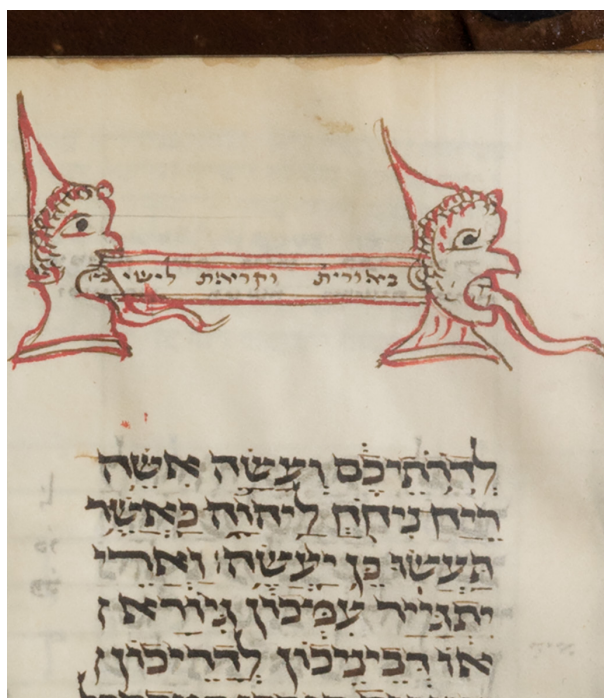 באורית וקריאת לישי
לדרתיכם ועשה אשה
ריח ניחח ליהוה כאשר
תעשו כן יעשה׃ וארי
יתגייר עמכון גיורא
או דביניכון לדריכון